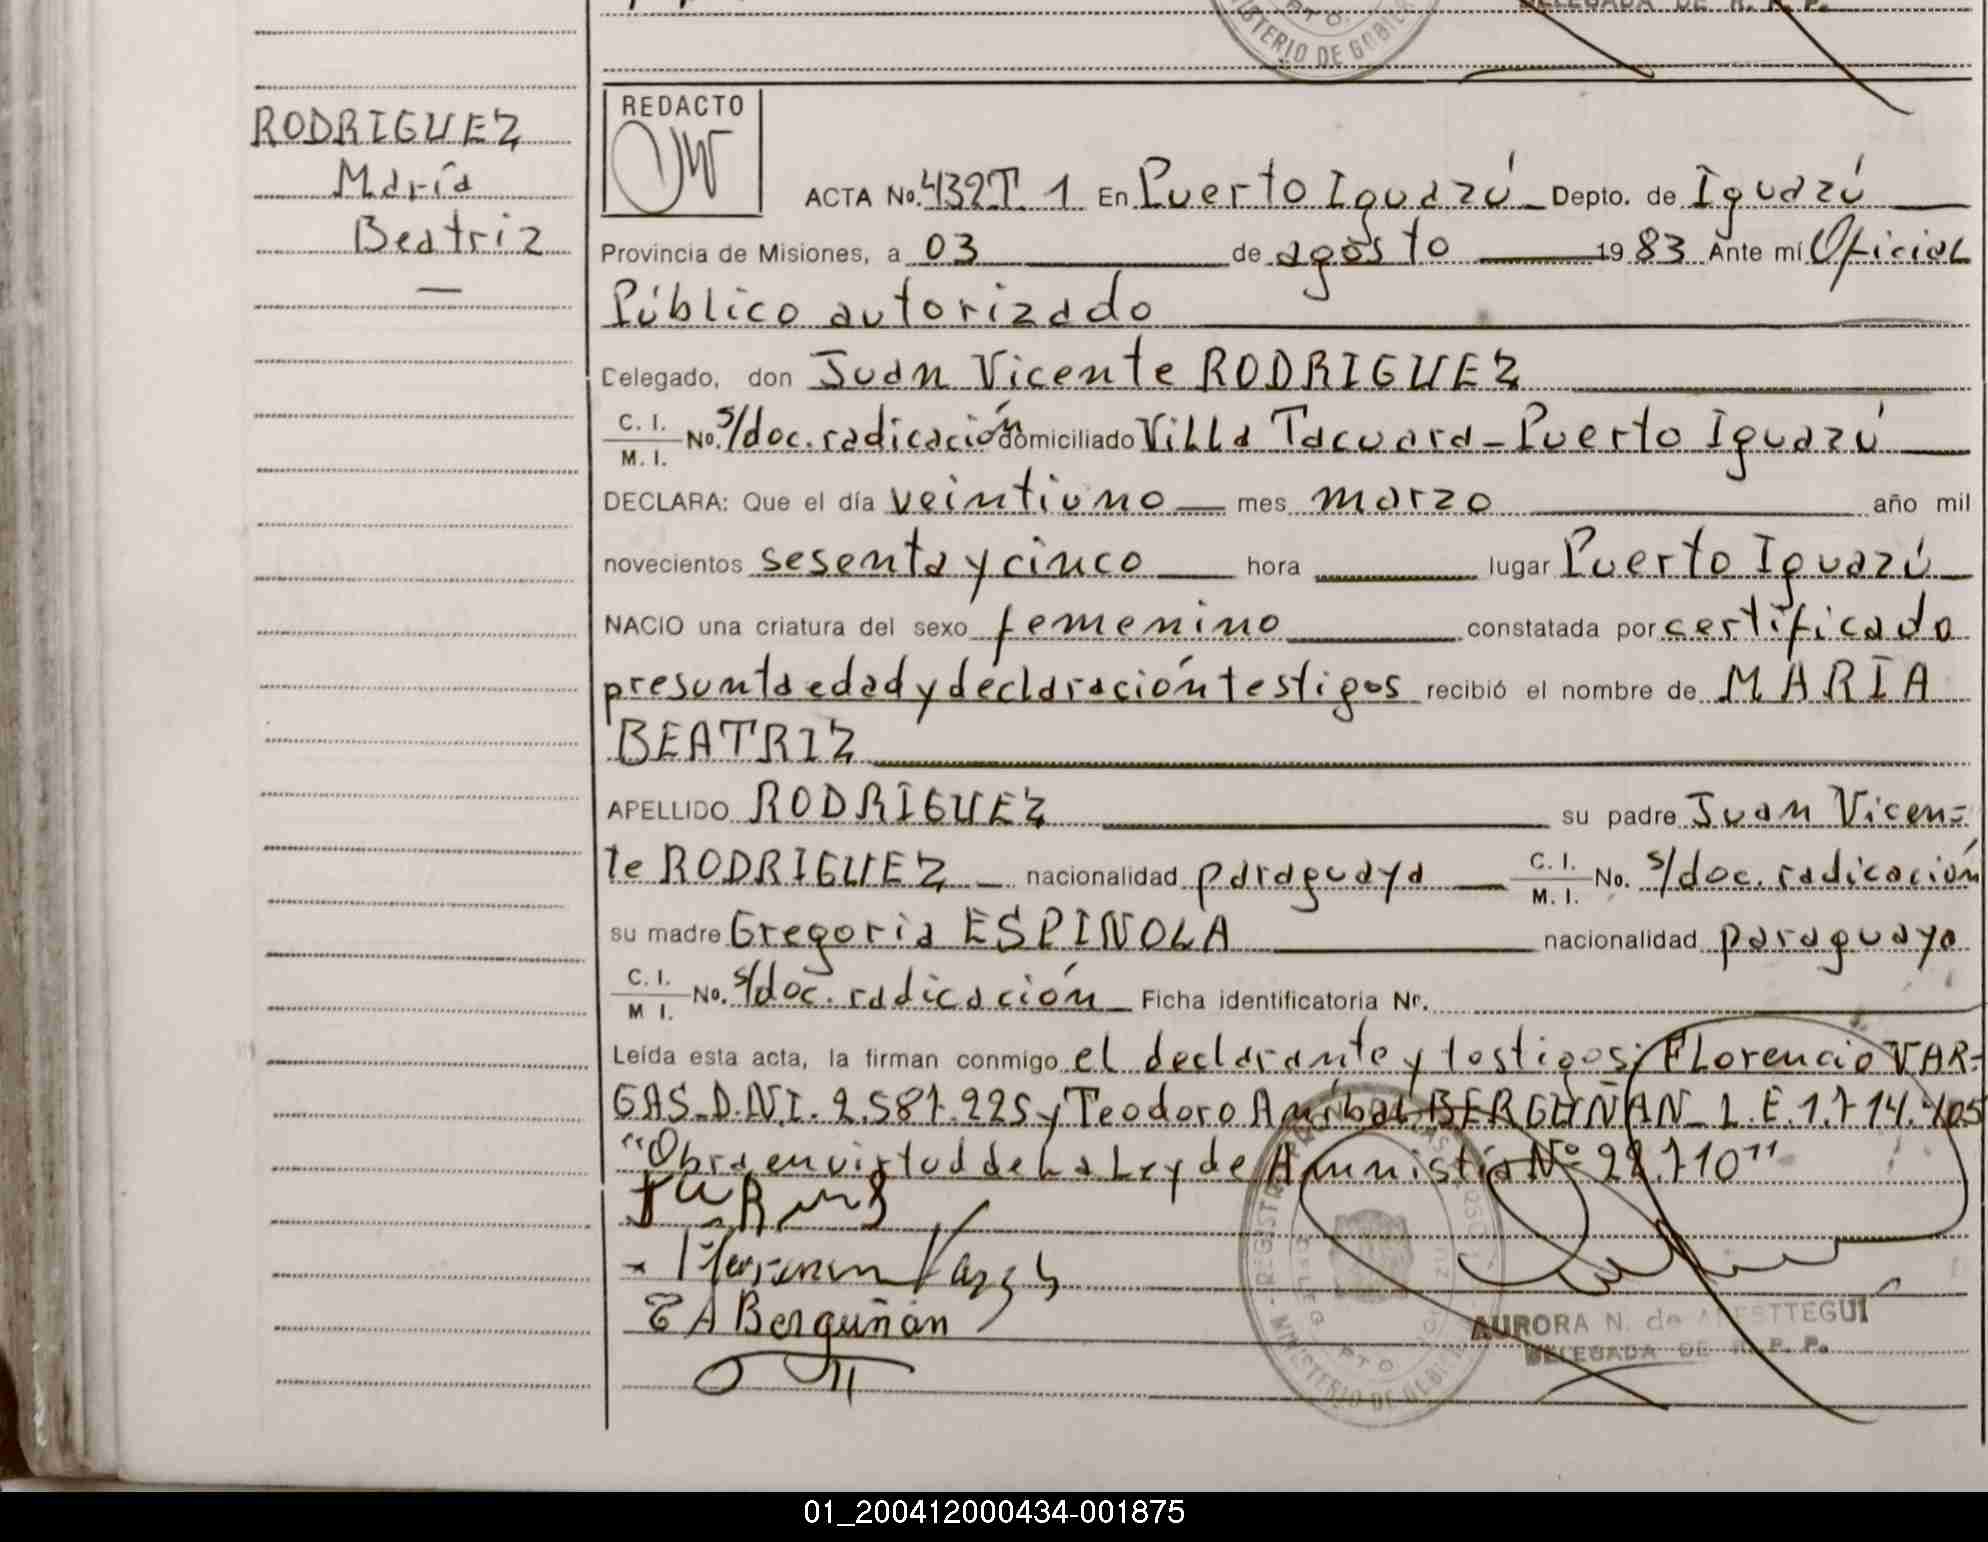 DELEGADA DE R. P. P.
MINISTERIO DE GOBIER
RODRIGUEZ
María
Beatriz
—
REDACTO
ACTA No. 432 T. 1 En Puerto Iguazú Depto. de Iguazú
Provincia de Misiones, a 03 de agosto 1983 Ante mí Oficial
Público autorizado
Celegado, don Juan Vicente RODRIGUEZ
C. I.
M. I. No. s/doc. radicación domiciliado Villa Tacuara - Puerto Iguazú
DECLARA: Que el día veintiuno mes marzo año mil
novecientos sesenta y cinco hora lugar Puerto Iguazú
NACIO una criatura del sexo femenino constatada por certificado
presunta edad y declaración testigos recibió el nombre de MARÍA
BEATRIZ
APELLIDO RODRIGUEZ su padre Juan Vicen=
te RODRIGUEZ nacionalidad paraguaya C. I. M. I. No. s/doc. radicación
su madre Gregoria ESPINOLA nacionalidad paraguaya
C. I.
M I. No. s/doc. radicación Ficha identificatoria Nr.
Leída esta acta, la firman conmigo el declarante y testigos: Florencio VAR=
GAS-D.N.I. 2.587.225 y Teodoro Aníbal BERGUÑAN - L.E. 1.714.405
"Obra en virtud de La Ley de Amnistía Nº 22.710"
T A Berguñan
AURORA N. de
DELEGADA DE R. P. P.
MINISTERIO DE GOBI
01_200412000434-001875